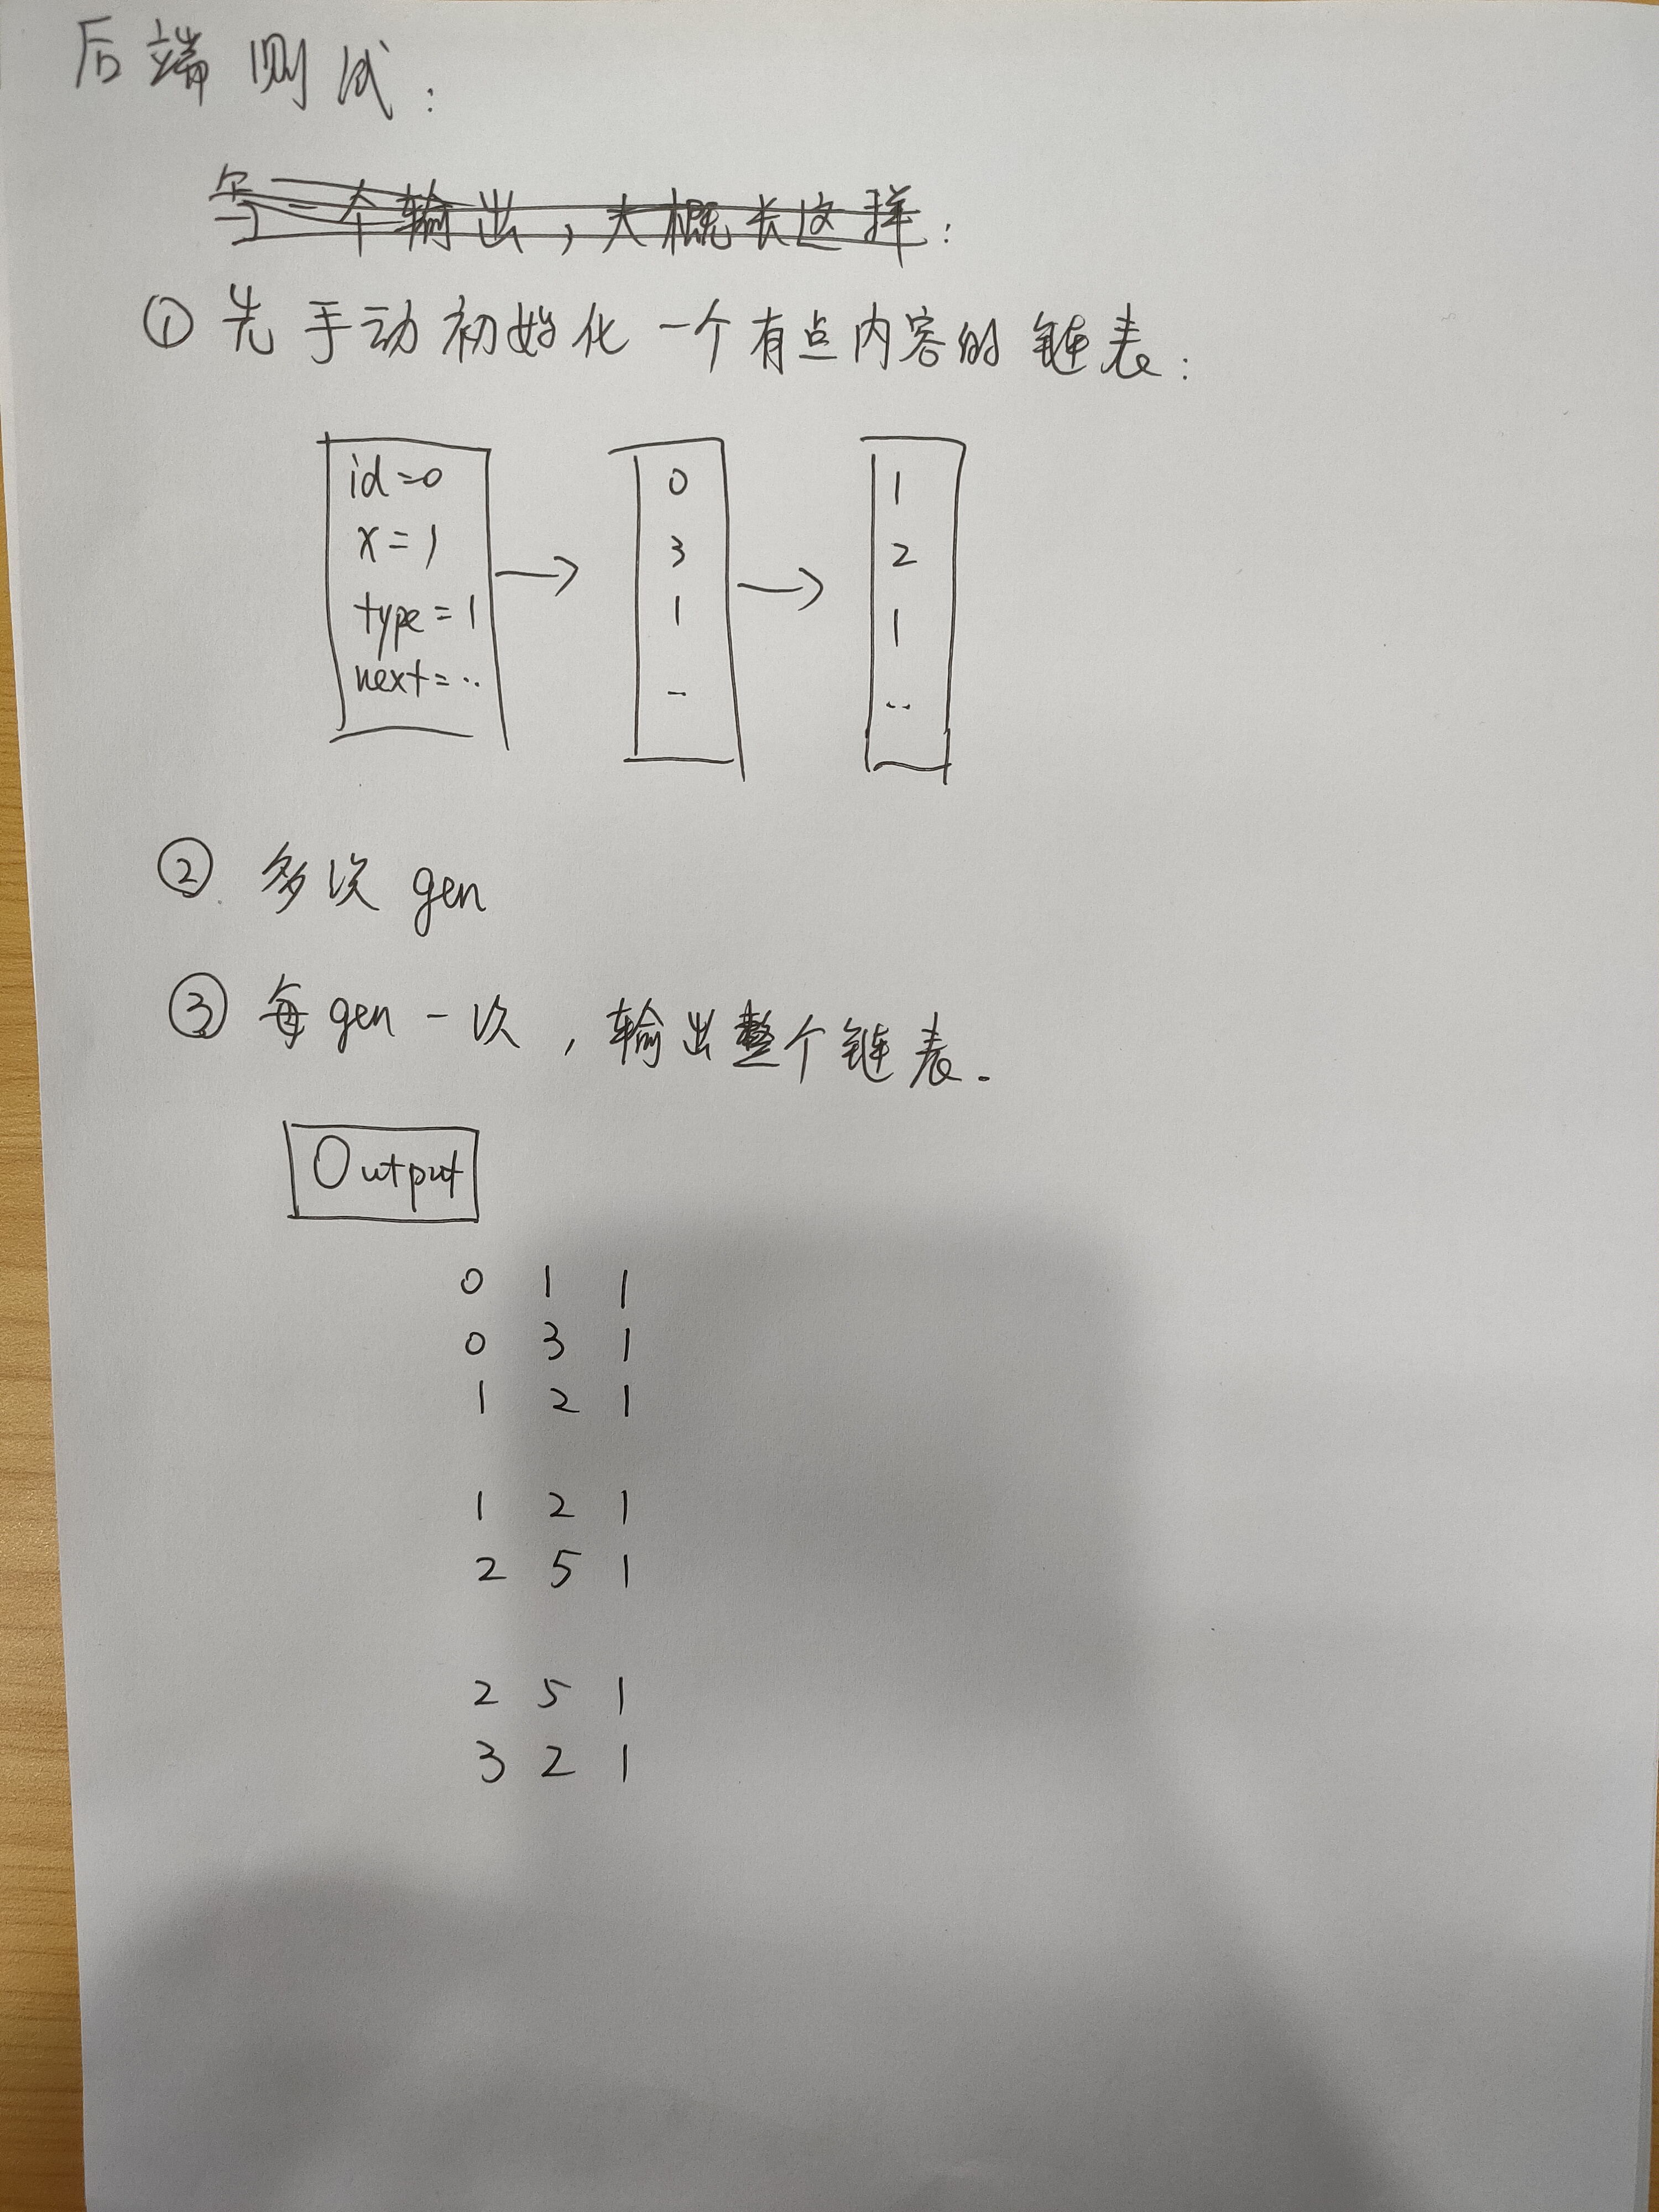 后端测试:
写一个输出,大概长这样:
① 先手动初始化一个有点内容的链表:
id=0
x=1
type=1
next=..
0
3
1
-
1
2
1
..
② 多次 gen
③ 每gen一次,输出整个链表.
Output
0 1 1
0 3 1
1 2 1
1 2 1
2 5 1
2 5 1
3 2 1